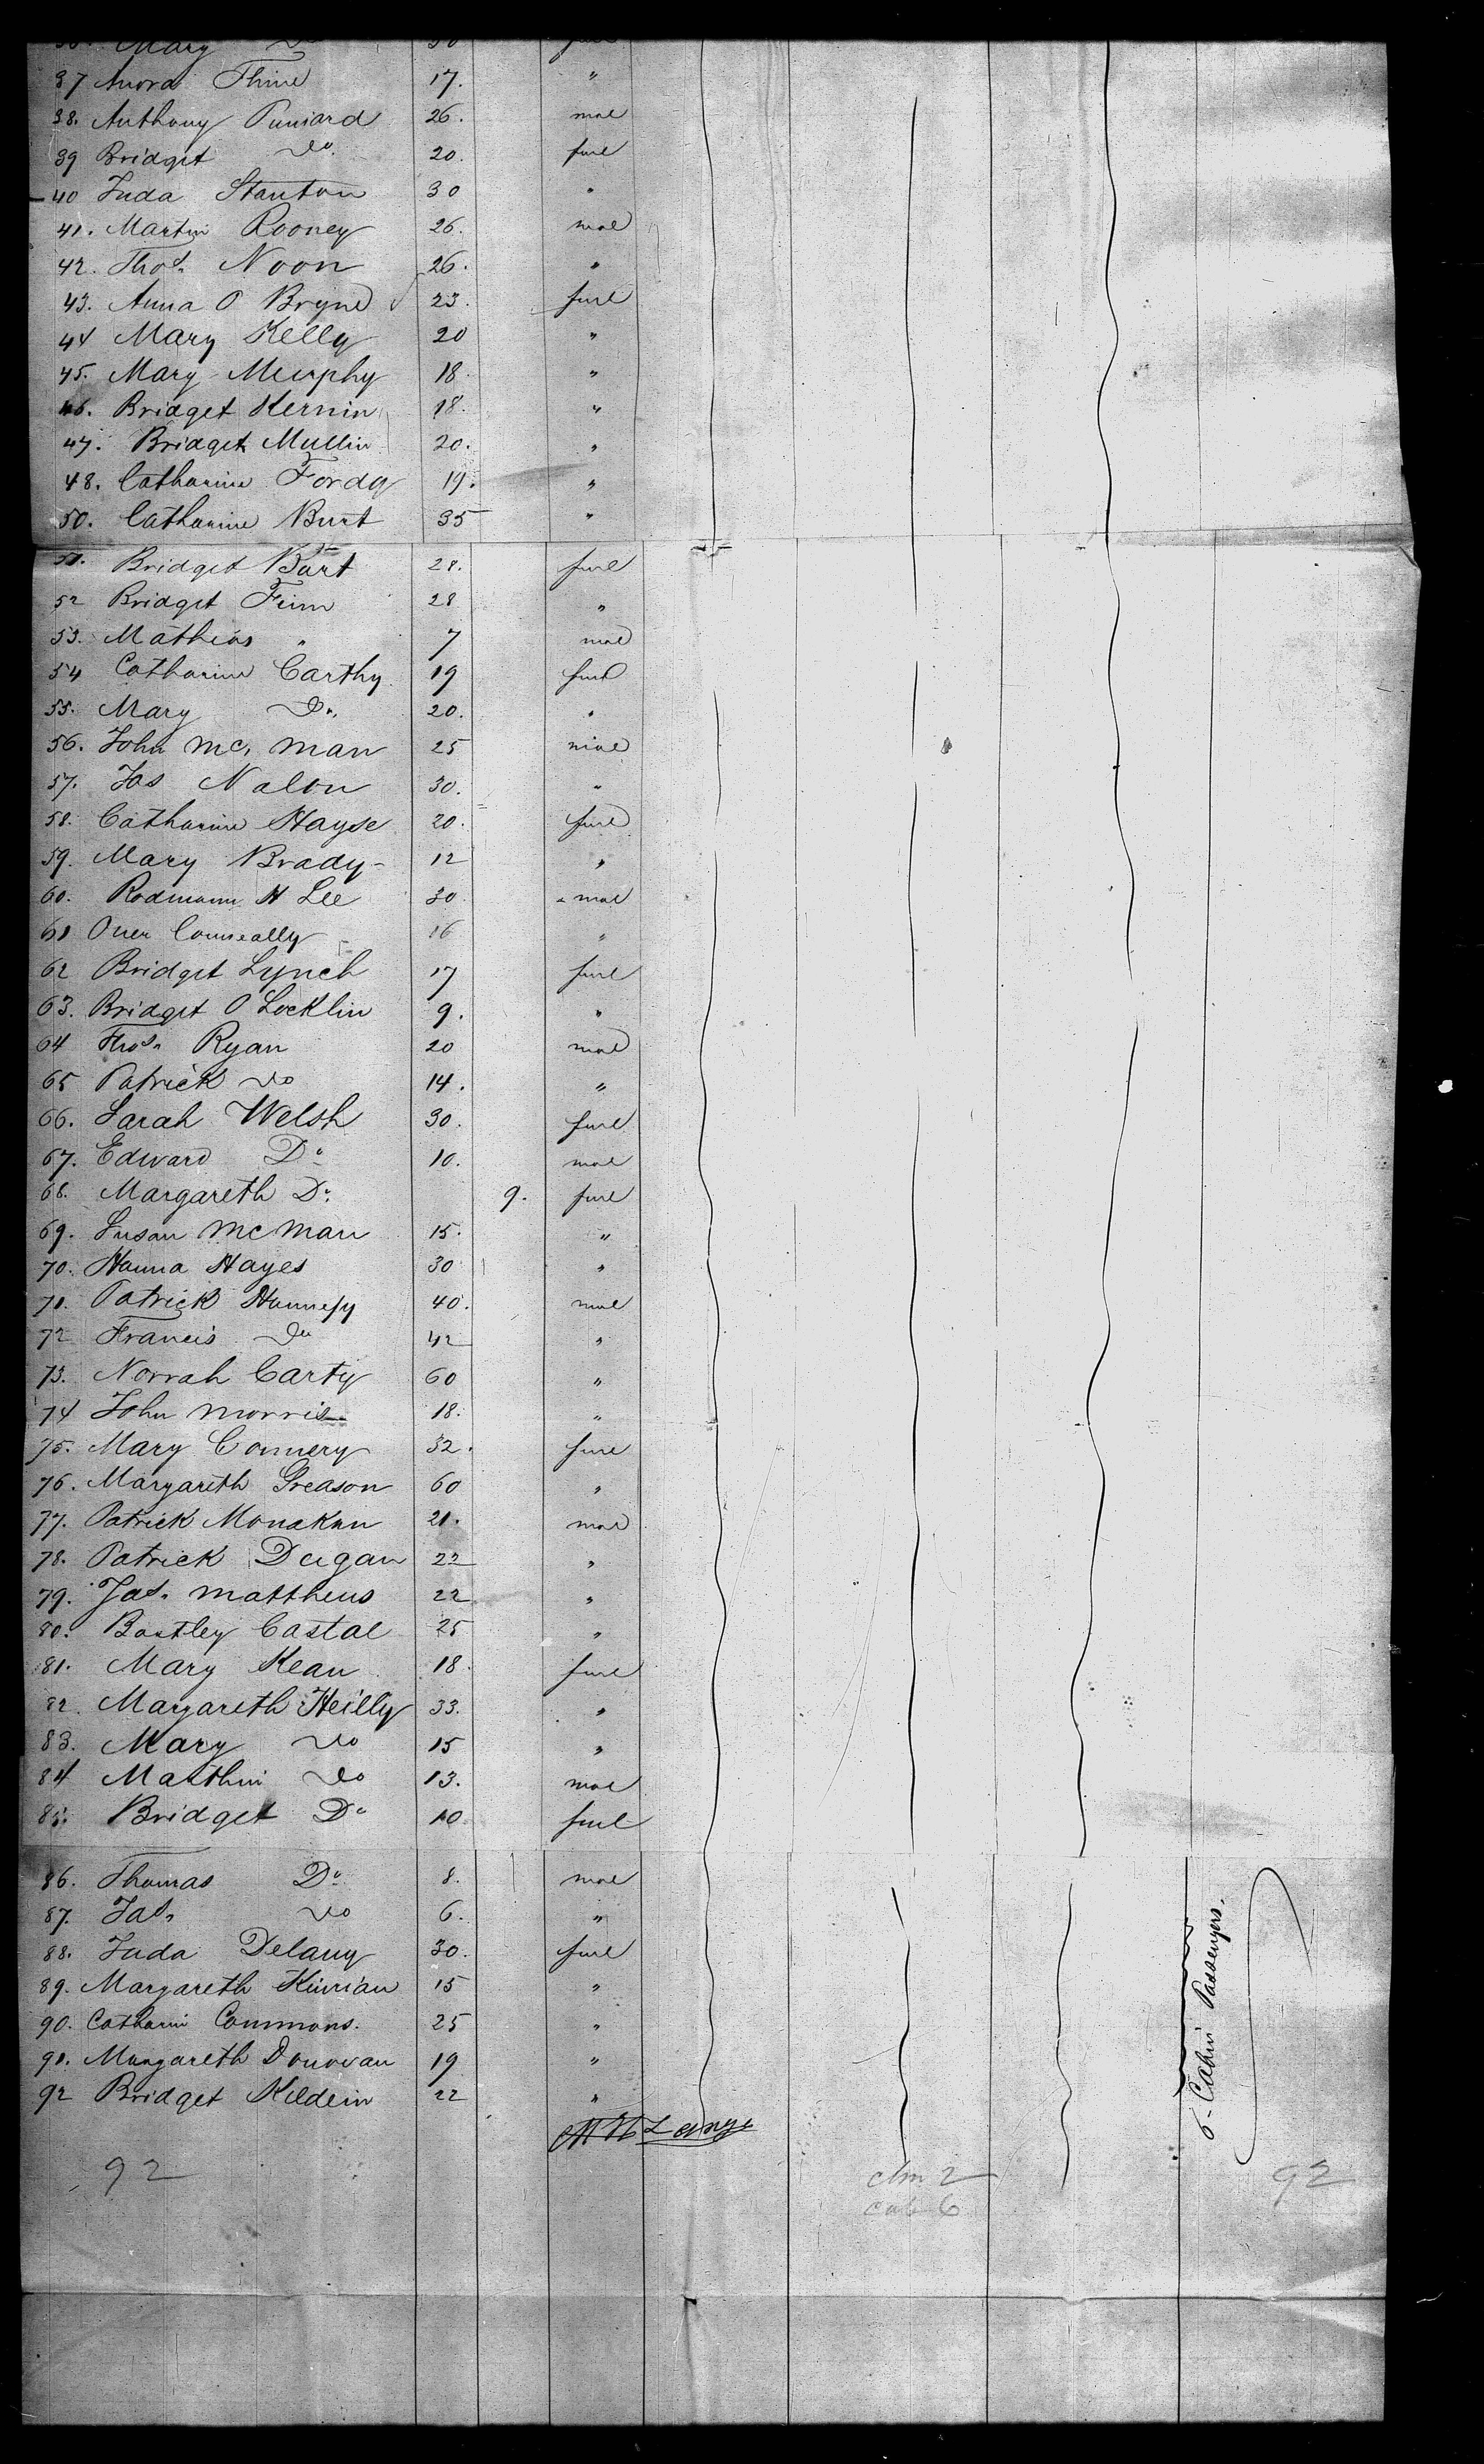 36. Mary Do 30 fml
37 Anora Thine 17. "
38. Anthony Puniard 26. mal
39 Bridget do 20. fml
40 Juda Stanton 30 "
41. Martin Rooney 26. mal
42. Thos. Noon 26. "
43. Anna O Bryne 23. fml
44 Mary Kelly 20 "
45. Mary Murphy 18. "
46. Bridget Kernin 18. "
47. Bridget Mullin 20. "
48. Catharine Fordy 19. "
50. Catharine Burt 35 "
51. Bridget Burt 28. fml
52 Bridget Finn 28 "
53. Mathias " 7 mal
54 Catharine Carthy 19 fml
55. Mary Do. 20. "
56. John Mc. Man 25 mal
57. Jas Nalon 30. "
58. Catharine Hayse 20. fml
59. Mary Brady 12 "
60. Rodmann H Lee 30. mal
61 Owen Conneally 16 "
62 Bridget Lynch 17 fml
63. Bridget O Locklin 9. "
64 Thos. Ryan 20 mal
65 Patrick do 14. "
66. Sarah Welsh 30. fml
67. Edward Do 10. mal
68. Margareth Do. 9. fml
69. Susan McMan 15. "
70. Hanna Hayes 30 "
71. Patrick Hennesy 40. mal
72 Francis Do 42 "
73. Norrah Carty 60 "
74 John Morris 18. "
75. Mary Connery 32. fml
76. Margareth Greason 60 "
77. Patrick Monakan 21. mal
78. Patrick Dugan 22 "
79. Jas. Mattheus 22 "
80. Bartley Castal 25 "
81. Mary Kean 18. fml
82. Margareth Heilly 33. "
83. Mary do 15 "
84 Marthin do 13. mal
85. Bridget Do 10. fml
86. Thomas Do 8. mal
87. Jas. do 6. "
88. Juda Delany 30. fml
89. Margareth Kinrian 15 "
90. Catharin Commons. 25 "
91. Margareth Donovan 19 "
92 Bridget Kildein 22 "
6 - Cabin Passengers.
92
chn 2
cab 6
92